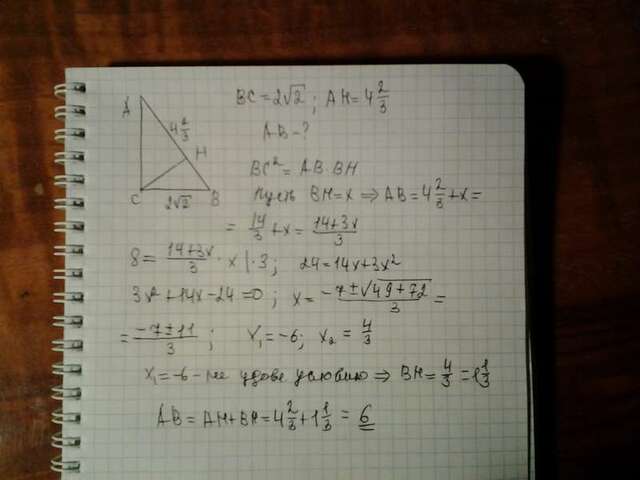 BC = 2√2 ; AH = 4 2/3
A
4 2/3
H
C
2√2
B
AB - ?
BC² = AB · BH
Пусть BH = x ⇒ AB = 4 2/3 + x =
= 14/3 + x = (14+3x)/3
8 = (14+3x)/3 · x | · 3 ; 24 = 14x + 3x²
3x² + 14x - 24 = 0 ; x = (-7 ± √(49 + 72))/3 =
= (-7 ± 11)/3 ; x₁ = -6 ; x₂ = 4/3
x₁ = -6 - не удовл условию ⇒ BH = 4/3 = 1 1/3
AB = AH + BH = 4 2/3 + 1 1/3 = 6